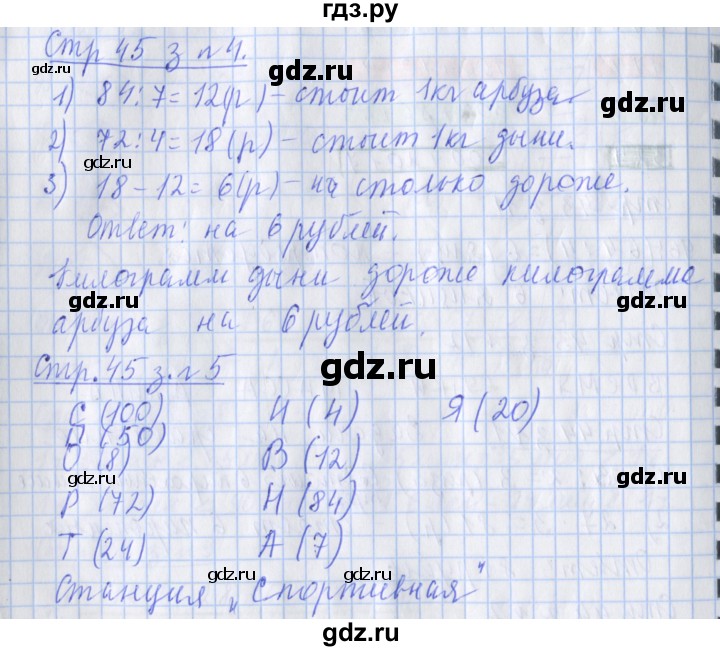 гдз.ру
Стр 45 з №4.
1) 84:7=12(р)-стоит 1кг арбуза.
2) 72:4=18(р)-стоит 1кг дыни.
3) 18-12=6(р)-на столько дороже.
Ответ: на 6 рублей.
Килограмм дыни дороже килограмма
арбуза на 6 рублей.
Стр.45 з.№5
С (100) И (4) Я (20)
П (50)
О (8) В (12)
Р (72) Н (84)
Т (24) А (7)
Станция "Спортивная"
gdz.ru
gdz.ru
gdz.ru
gdz.ru
gdz.ru
gdz.ru
gdz.ru
gdz.ru
gdz.ru
gdz.ru
gdz.ru
gdz.ru
gdz.ru
gdz.ru